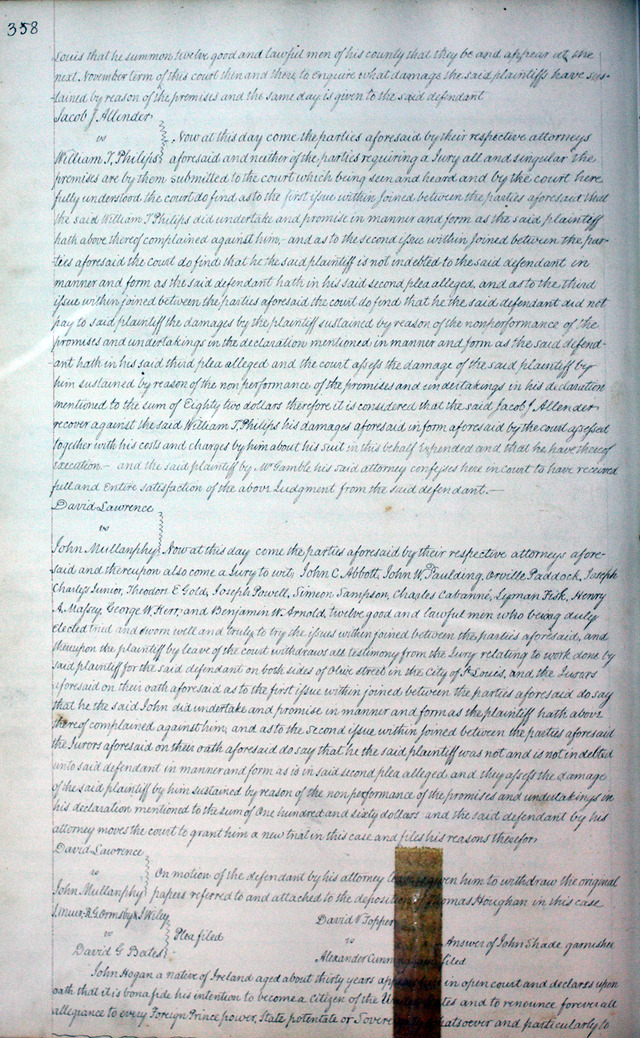 358
Louis that he summon twelve good and lawful men of his county that they be and appear at the
next November term of this court then and there to enquire what damage the said plaintiffs have sus-
tained by reason of the premises and the same day is given to the said defendant
Jacob J. Allender
vs
William T. Philips Now at this day come the parties aforesaid by their respective attorneys
aforesaid and neither of the parties requiring a Jury all and singular the
premises are by them submitted to the court which being seen and heard and by the court here
fully understood the court do find as to the first issue within joined between the parties aforesaid that
the said William T. Philips did undertake and promise in manner and form as the said plaintiff
hath above thereof complained against him,- and as to the second issue within joined between the par-
ties aforesaid the court do find that he the said plaintiff is not indebted to the said defendant in
manner and form as the said defendant hath in his said second plea alleged, and as to the third
issue within joined between the parties aforesaid the court do find that he the said defendant did not
pay to said plaintiff the damages by the plaintiff sustained by reason of the nonperformance of the
promises and undertakings in the declaration mentioned in manner and form as the said defend-
ant hath in his said third plea alleged and the court assess the damage of the said plaintiff by
him sustained by reason of the non performance of the promises and undertakings in his declaration
mentioned to the sum of Eighty two dollars therefore it is considered that the said Jacob J. Allender
recover against the said William T. Philips his damages aforesaid in form aforesaid by the court assessed
together with his costs and charges by him about his suit in this behalf Expended and that he have thereof
execution- and the said plaintiff by Mr Gamble his said attorney confesses here in court to have received
full and Entire satisfaction of the above Judgment from the said defendant.-
David Lawrence
vs
John Mullanphy Now at this day come the parties aforesaid by their respective attorneys afore-
said and thereupon also come a Jury to wit, John C. Abbott, John W. Paulding, Orville Paddock, Joseph
Charless Junior, Theodore E. Gold, Joseph Powell, Simeon Sampson, Charles Cabanné, Lyman Fisk, Henry
A. Massey, George W. Kerr, and Benjamin W. Arnold, twelve good and lawful men who being duly
elected tried and sworn well and truly to try the issues within joined between the parties aforesaid, and
thereupon the plaintiff by leave of the court withdraws all testimony from the Jury relating to work done by
said plaintiff for the said defendant on both sides of Olive street in the City of St. Louis, and the Jurors
aforesaid on their oath aforesaid as to the first issue within joined between the parties aforesaid do say
that he the said John did undertake and promise in manner and form as the plaintiff hath above
thereof complained against him, and as to the Second issue within joined between the parties aforesaid
the Jurors aforesaid on their oath aforesaid do say that he the said plaintiff was not and is not indebted
unto said defendant in manner and form as is in said second plea alleged and they assess the damage
of the said plaintiff by him sustained by reason of the non performance of the promises and undertakings in
his declaration mentioned to the sum of One hundred and sixty dollars and the said defendant by his
attorney moves the court to grant him a new trial in this case and files his reasons therefor,
David Lawrence
vs
On motion of the defendant by his attorney given him to withdraw the original
John Mullanphy papers referred to and attached to the deposition Thomas Houghan in this case
R. G. Ormsby & S. Wiley
vs
David G Bates
Plea filed
David V Topper
vs
Alexander
Answer of John Shade garnishee
filed
John Hogan a native of Ireland aged about thirty years in open court and declares upon
oath that it is bona fide his intention to become a citizen of the United States and to renounce forever all
allegiance to every Foreign Prince power, State potentate or whatsoever and particularly to